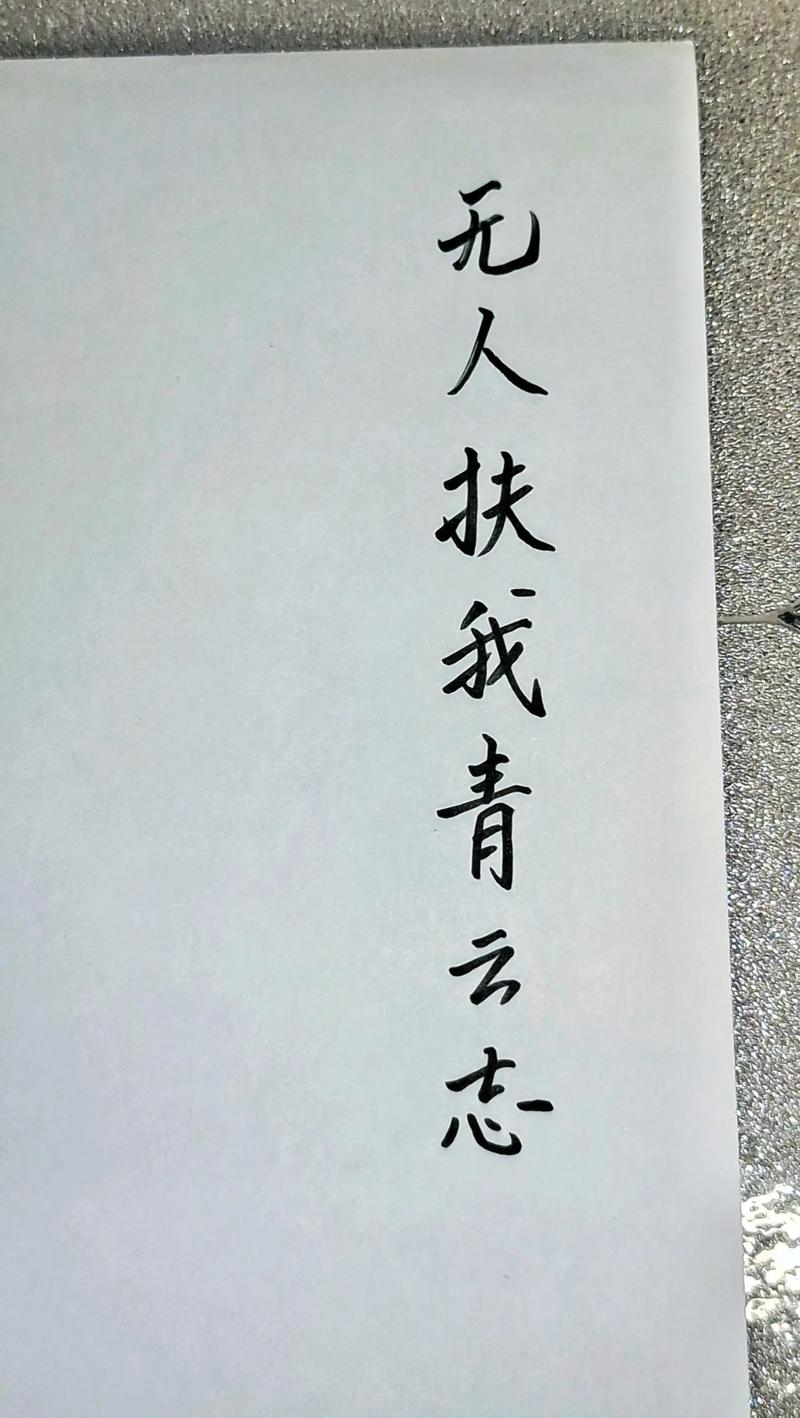 无人扶我青云志